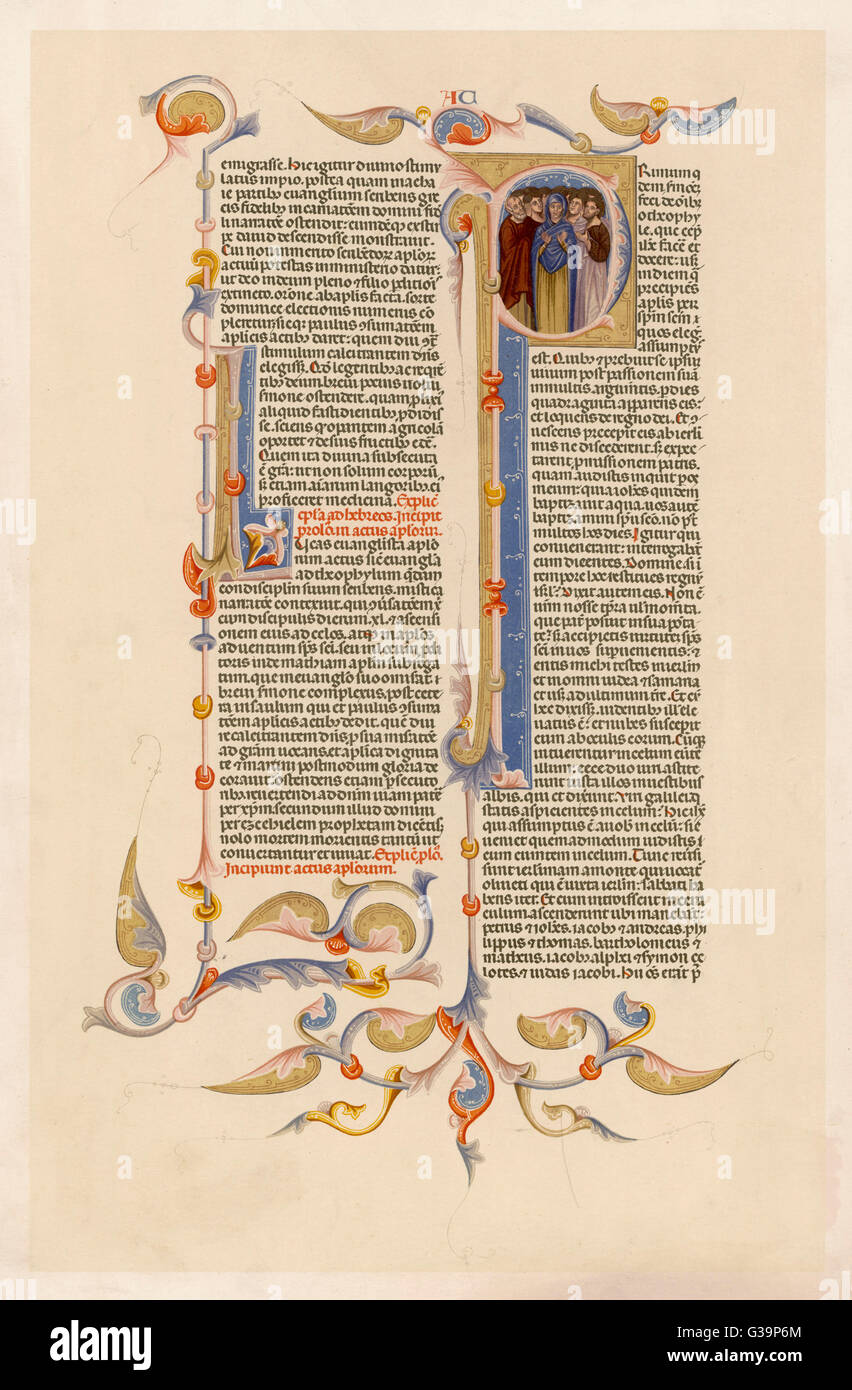 AC
emigrasse. hic igitur divino stimu
latus impio. postea quam mache
ie partibus euangelium scribens gre
cis fidelibus incarnatem domini
narratem ostendit: eundemque
de david descendisse monstravit.
Cui non immerito scribendor aplor
actuum potestas in ministerio datur:
ut deo in deum pleno et filio
extincto. oratione ab aplis facta. sorte
dominice electionis numerus co
pleretur: sicque paulus consummatem
aplicis actibus daret: quem diu
stimulum calcitrantem dns
elegisset. legentibus
deum brevi potius volui
sermone ostendere. quam
aliquid fastidientibus prodidis
se. sciens quod operantem agricolam
oportet de suis fructibus
Quem ita divina subsecuta
gra: ut non solum corporibus
sed etiam aiabus languoribus ei
proficeret medicina. Explic
epla ad hebreos. Incipit
prolo. in actus aplorum.
Lucas euangelista aplo
rum actus sic euangelia
ad theophylum quendam
condisciplum suum scribens. mistica
narratem contexuit. qui
cum discipulis dierum. xl. et ascensi
onem eius ad celos. atque in aplos
adventum sps sci. seu prodi
toris inde mathiam aplm subroga
tum. que in euanglo suo omiserat. i
brevi sermone complexus. post cete
ra in saulum qui et paulus consuma
tem aplicis actibus dedit. que diu
recalcitrantem dns. p sua
ad gram vocans. et aplica dignita
te et martirii postmodum gloria de
coravit: ostendens etiam persecuto
ribus revertendi ad dnm viam pate
per xpm. secundum illud domini
per ezechielem prophetam dicentis.
nolo mortem morientis tantum ut
convertantur et vivat. Explic. plo.
Incipiunt actus aplorum.
Primum q
dem smoem
feci de oibus
o theophy
le. que cepit
ihs facere et
docere: usque
in diem qua
precipiens
aplis per
spm scm
quos elegit
assumptus
est. Quibus et prebuit se ipsum
vivum post passionem suam
in multis argumentis. p dies
quadraginta apparens eis:
et loquens de regno dei. Et con
vescens precepit eis ab ierlimis
ne discederent. sed expec
tarent promissionem patris.
quam audistis inquit p os
meum: quia iohes quidem
baptizavit aqua. vos autem
baptizamini spu sco. no post
multos hos dies. Igitur qui
convenerant: interrogabant
eum dicentes. Domine. si i
tempore hoc restitues regnum
isrl? Dixit autem eis. Non e
vrm nosse tpra vl momta.
que pater posuit in sua pota
te: set accipietis virtutem sps
sci in vos supvenientis: et
eritis michi testes in ierlm
et in omni iudea et samaria
et usque ad ultimum tre. Et cum
hec dixisset. videntibus illis. ele
vatus e: et nubes suscepit
eum ab oculis eorum. Cumque
intuerentur in celum
illum. ecce duo viri astite
runt iuxta illos in vestibus
albis. qui et dixerunt. Viri galilei. q
statis aspicientes in celum: hic ihs
qui assumptus e a vob in celum: sic
veniet quem ad modum vidistis
eum euntem in celum. Tunc reversi
sunt ierlimam a monte qui vocatur
oliveti qui e iuxta ierlm: sabbati ha
bens iter. Et cum introissent in cena
culum. ascenderunt ubi manebat:
petrus et iohes. iacobus et andreas. phi
lippus et thomas. bartholomeus et
matheus. iacobus alphei et symon ze
lotes. et iudas iacobi. Hii oes erant p
alamy
Image ID: G39P6M
www.alamy.com